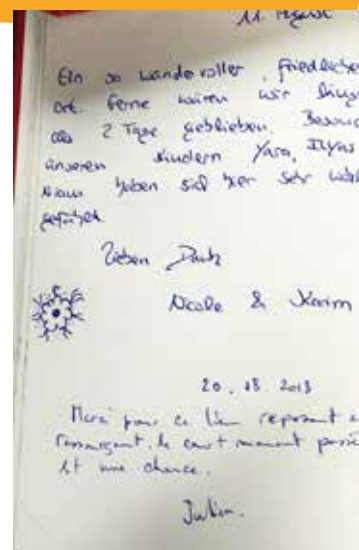 11. August
Ein so wundervoller, friedlicher
Ort. Gerne wären wir länger
als 2 Tage geblieben. Besond
unseren Kindern Yara, Ilyas
haben sich hier sehr wohl
gefühlt.
Lieben Dank
Nicole & Karim
20.08.2018
Merci pour ce lieu reposant e
ressourçant. le court moment passé
est une chance.
Julien.